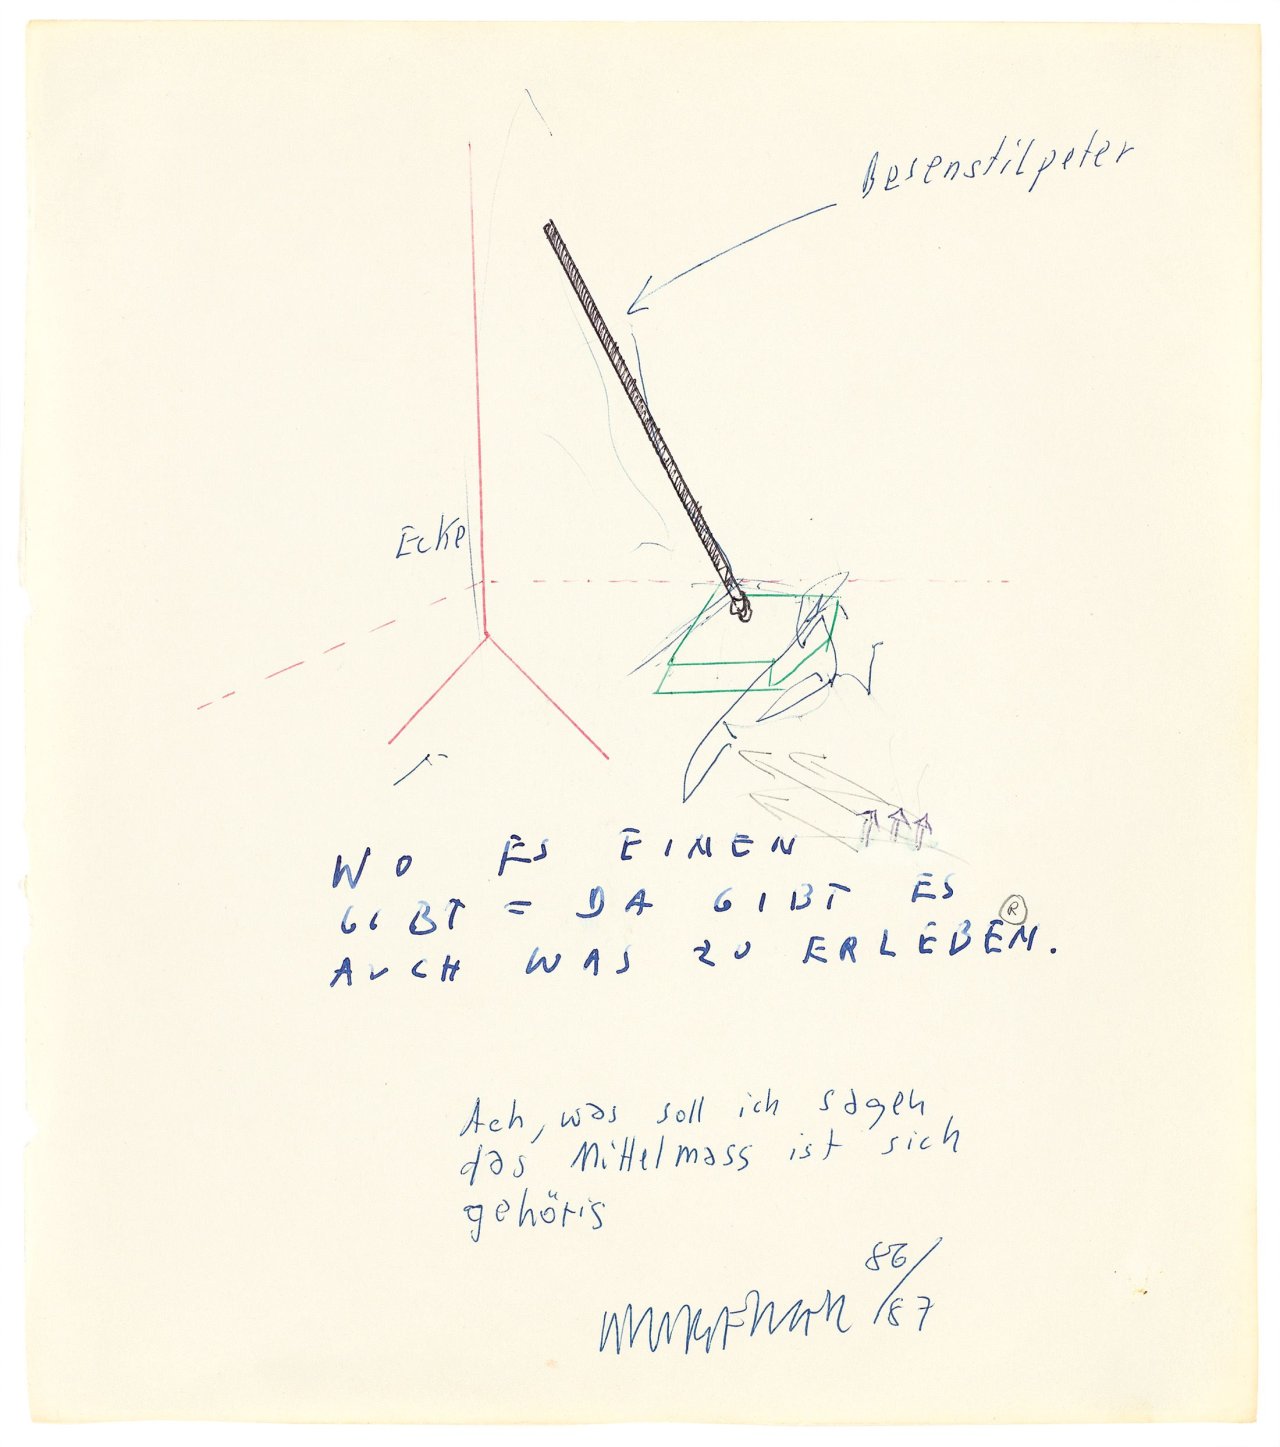 Besenstilpeter
Ecke
WO ES EINEN
GIBT = DA GIBT ES
AUCH WAS ZU ERLEBEN. ®
Ach, was soll ich sagen
das Mittelmass ist sich
gehörig
86/
/87